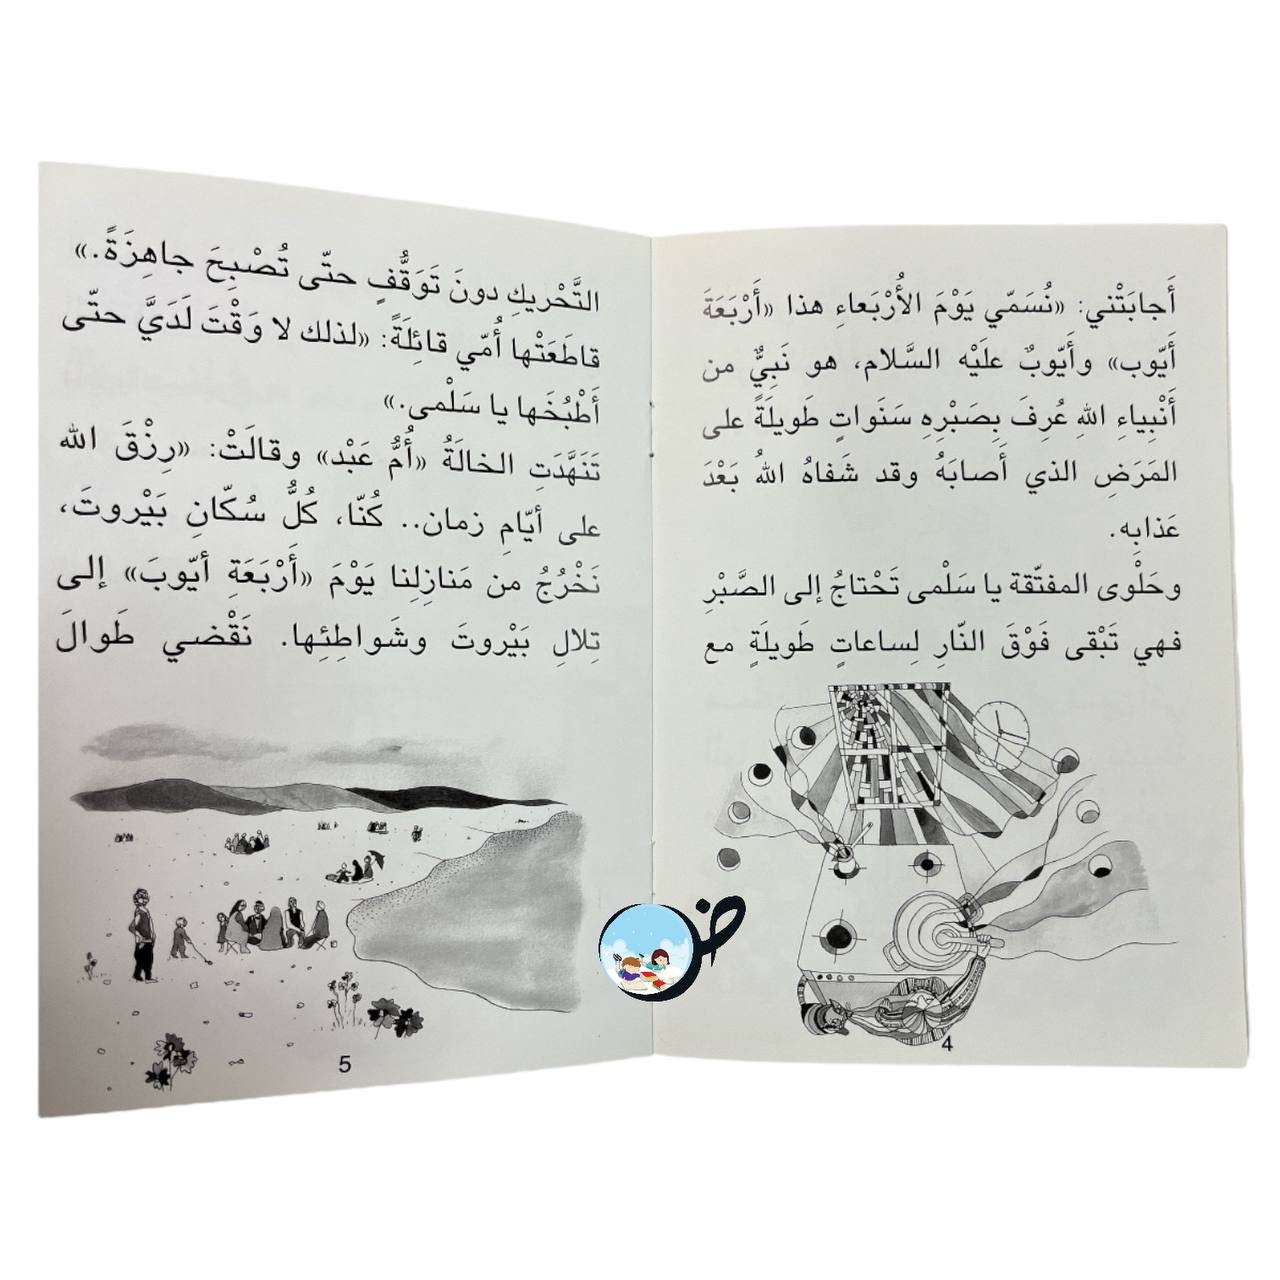 أَجابَتْني: «نُسَمّي يَوْمَ الأَرْبَعاءِ هذا «أَرْبَعَةَ
أَيّوب» وأَيّوبٌ علَيْه السَّلام، هو نَبِيٌّ من
أَنْبِياءِ اللهِ عُرِفَ بِصَبْرِهِ سَنَواتٍ طَويلَةً على
المَرَضِ الذي أَصابَهُ وقد شَفاهُ اللهُ بَعْدَ
عَذابِه.
وحَلْوى المفتّقة يا سَلْمى تَحْتاجُ إلى الصَّبْرِ
فهي تَبْقى فَوْقَ النّارِ لِساعاتٍ طَويلَةٍ مع
4
التَّحْريكِ دونَ تَوَقُّفٍ حتّى تُصْبِحَ جاهِزَةً.»
قاطَعَتْها أُمّي قائِلَةً: «لذلك لا وَقْتَ لَدَيَّ حتّى
أَطْبُخَها يا سَلْمى.»
تَنَهَّدَتِ الخالَةُ «أُمُّ عَبْد» وقالَتْ: «رِزْقَ الله
على أيّامِ زمان.. كُنّا، كُلُّ سُكّانِ بَيْروتَ،
نَخْرُجُ من مَنازِلِنا يَوْمَ «أَرْبَعَةِ أيّوبَ» إلى
تِلالِ بَيْروتَ وشَواطِئِها. نَقْضي طَوالَ
5
ض